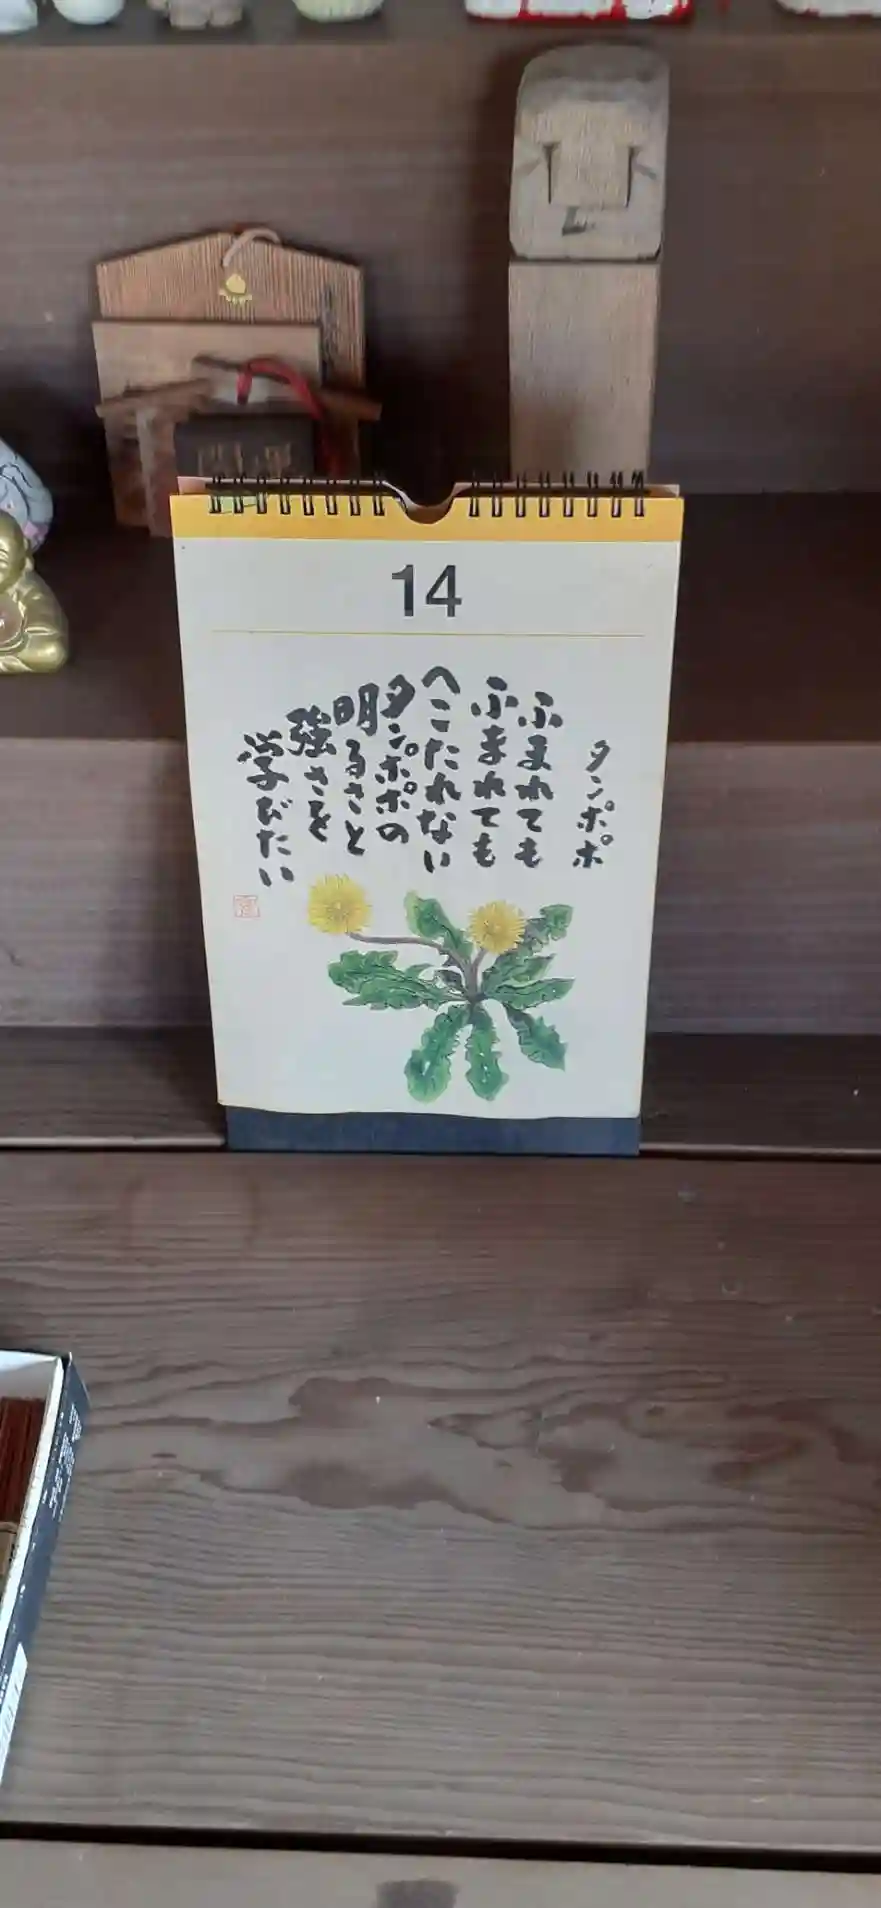 14
タンポポ
ふまれても
ふまれても
へこたれない
タンポポの
明るさと
強さを
学びたい